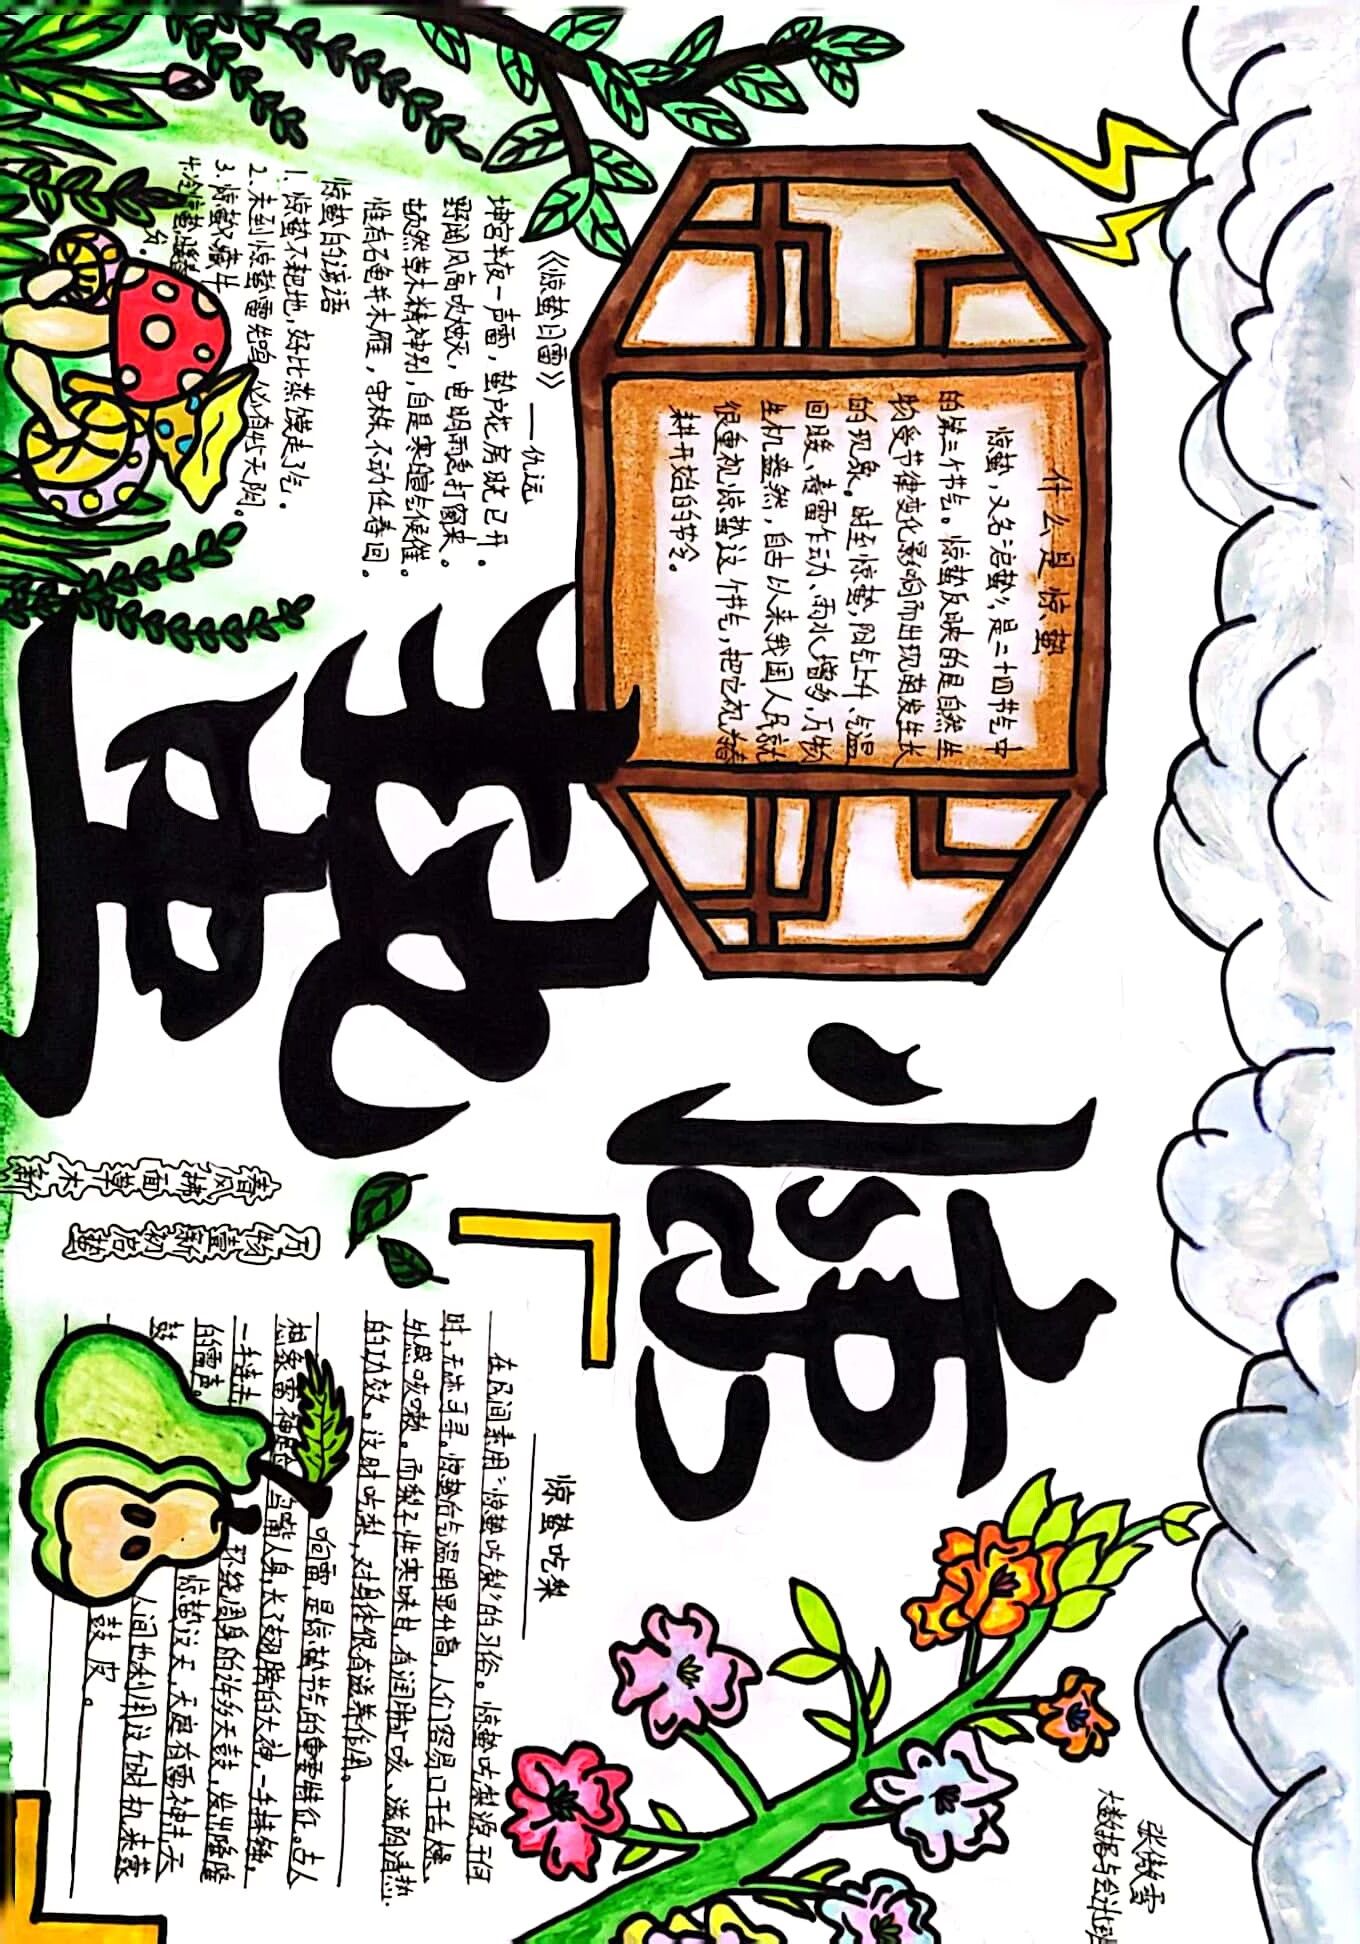 惊蛰
什么是惊蛰
惊蛰,又名“启蛰”,是二十四节气中
的第三个节气。惊蛰反映的是自然生
物受节律变化影响而出现萌发生长
的现象。时至惊蛰,阳气上升、气温
回暖、春雷乍动、雨水增多,万物
生机盎然,自古以来我国人民就
很重视惊蛰这个节气,把它视为春
耕开始的节令。
《惊蛰日雷》
——仇远
坤宫半夜一声雷,蛰户花房晓已开。
野阔风高吹烛灭,电明雨急打窗来。
顿然草木精神别,自是寒暄气候催。
惟有石龟并木雁,守株不动任春回。
惊蛰的谚语
1.惊蛰不耙地,好比蒸馍走了气。
2.未到惊蛰雷先鸣,必有
3.惊蛰
4.冷惊蛰,暖春
分。
春风拂面草木新
万物萱新初启蛰
惊蛰吃梨
在民间素有“惊蛰吃梨”的习俗。惊蛰吃梨源于何
时,无迹可寻。惊蛰后气温明显升高,人们容易口干舌燥、
外感咳嗽。而梨子性寒味甘,有润肺止咳、滋阴清热
的功效。这时吃梨,对身体很有滋养作用。
响雷,是惊蛰节气的重要特征。古人
想象雷神是 鸟嘴人身,长了翅膀的大神,一手持锤,
一手连击 环绕周身的许多天鼓,发出隆隆
的雷声。 惊蛰这天,天庭有雷神击天
鼓 人间也利用这个时机来蒙
鼓皮。
张傲雪
大数据与会计班